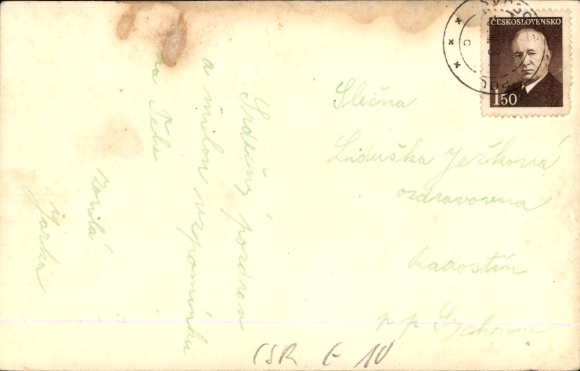 Srdečný pozdrav
a milou vzpomínku
na Tebe
Jarka
ČESKOSLOVENSKO
1.50
Slečna
Liduška Ježková
ozdravovna
Radostín
p.p. Sychrov
ČSR E 10